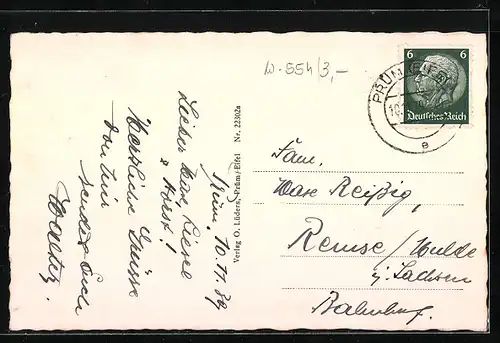 W-554/3,-
PRÜM (EIFEL)
10.
a
6 6
Deutsches Reich
Prüm. 10.11.39
Lieber Max, Liesel
& Horst!
Herzliche Grüsse
von hier
sendet Euch
Walter.
Verlag O. Lüders, Prüm/Eifel Nr. 22302a
Fam.
Max Reißig,
Remse/Mulde
i. Sachsen
Bahnhof.